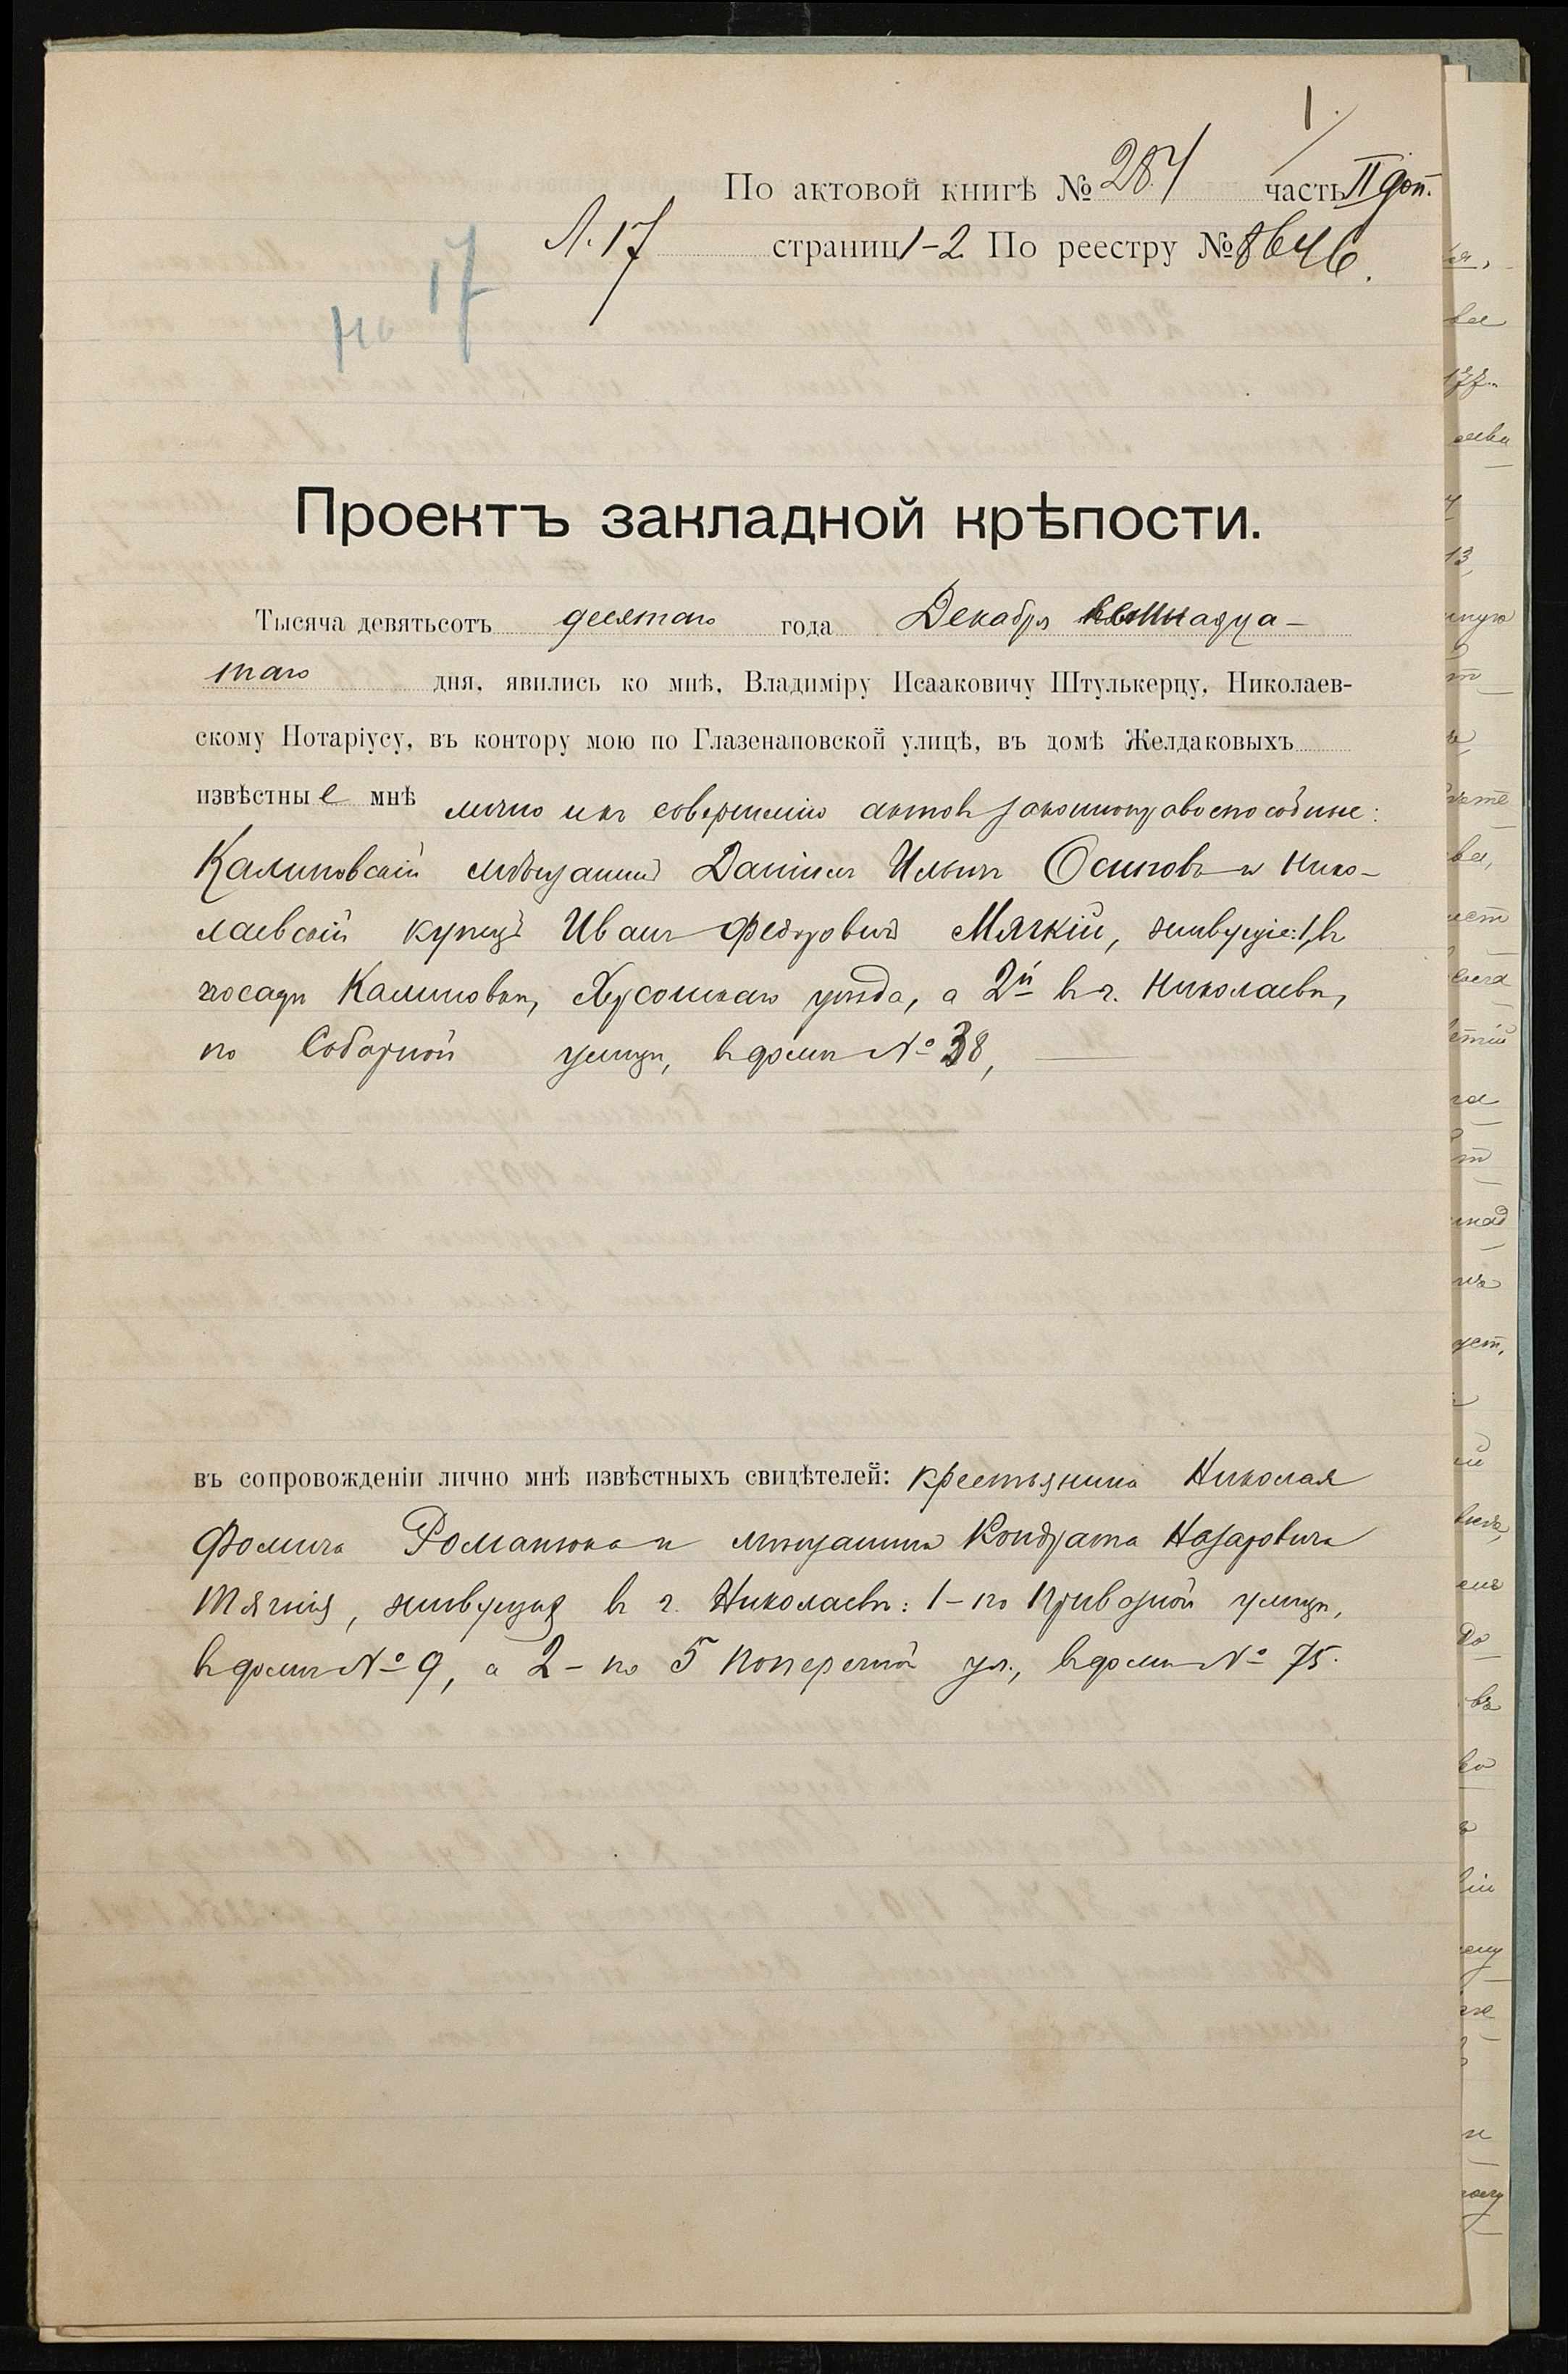 1.
По актовой книгѣ № 284 часть II доп.
Л. 17 страниц 1-2 По реестру № 8646.
17
Проектъ закладной крѣпости.
Тысяча девятьсотъ десятаго года Декабря
таго дня, явились ко мнѣ, Владиміру Исааковичу Штулькерцу, Николаев-
скому Нотаріусу, въ контору мою по Глазенаповской улицѣ, въ домѣ Желдаковыхъ
извѣстны е мнѣ лично и къ совершенію актовъ законноправоспособные:
Калиновскій мѣщанинъ Даніилъ Ильинъ Осиповъ и Нико-
лаевскій купецъ Иванъ Федоровичъ Мягкій, живущіе: 1, въ
посадѣ Калиновкѣ, Херсонскаго уѣзда, а 2й въ г. Николаевѣ,
по Соборной улицѣ, въ домѣ № 38,
въ сопровожденіи лично мнѣ извѣстныхъ свидѣтелей: крестьянина Николая
Фомича Романюка и мѣщанина Кондрата Назаровича
живущихъ въ г. Николаевѣ: 1 - по Привозной улицѣ,
въ домѣ № 9, а 2 - по 5 Поперечной ул., въ домѣ № 75.